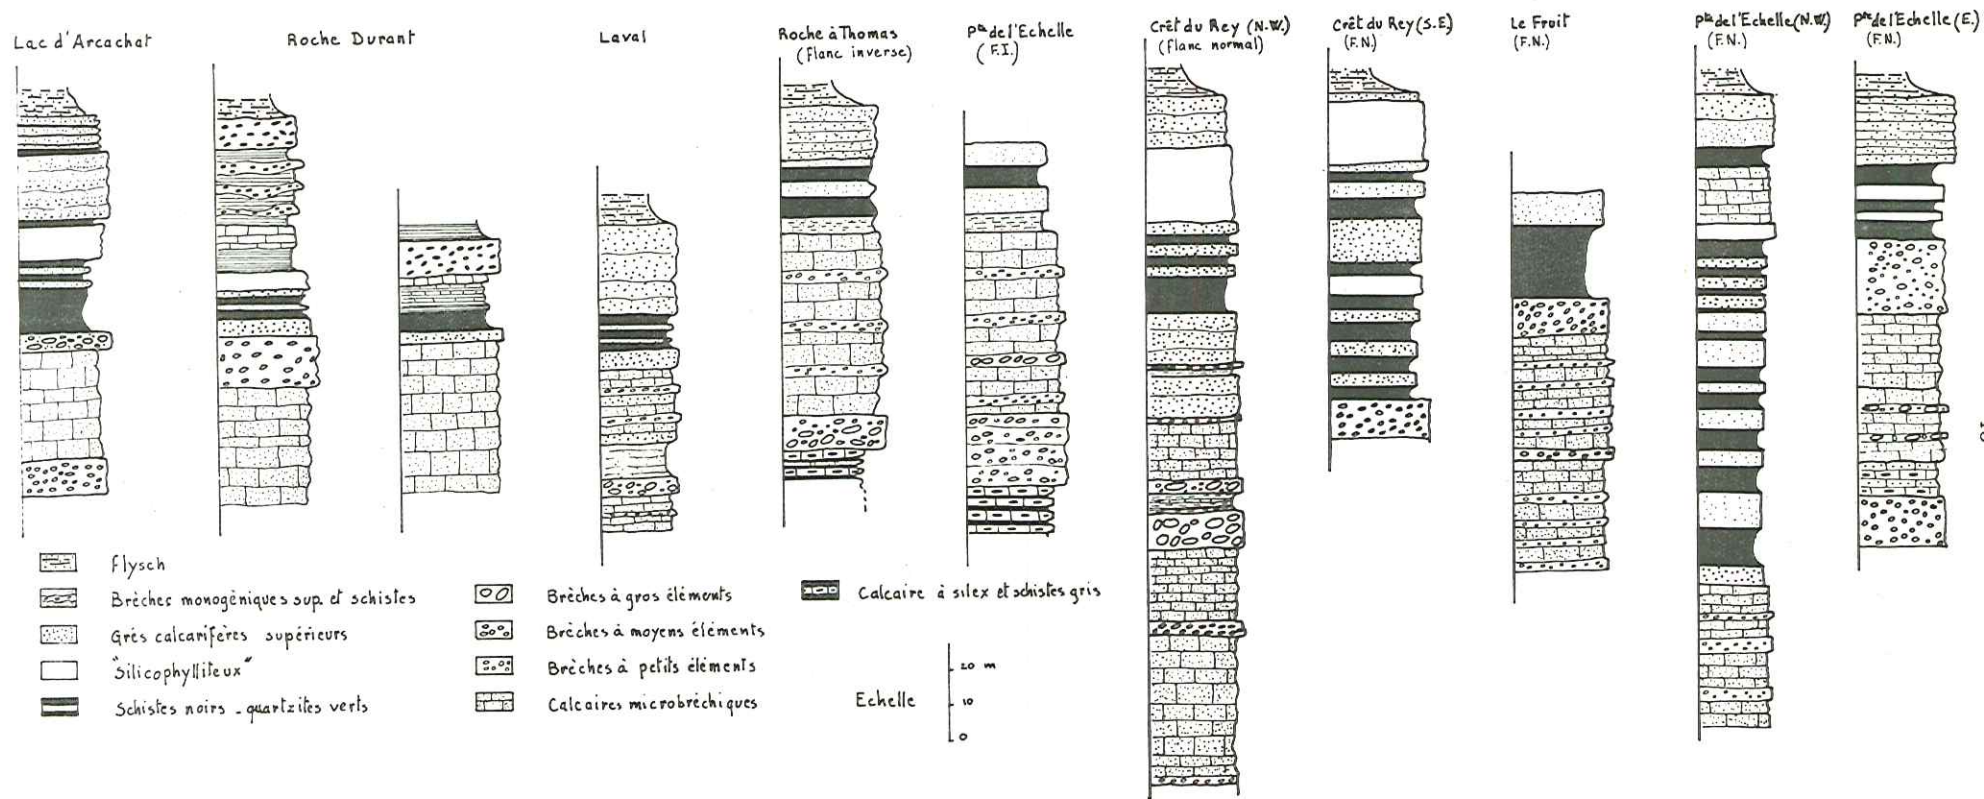 Lac d'Arcachat
Roche Durant
Laval
Roche à Thomas
(flanc inverse)
Pte de l'Echelle
(F.I.)
Crêt du Rey (N.W.)
(flanc normal)
Crêt du Rey (S.E)
(F.N.)
Le Fruit
(F.N.)
Pte de l'Echelle (N.W)
(F.N.)
Pte de l'Echelle (E.)
(F.N.)
Flysch
Brèches monogéniques sup. et schistes
Grès calcarifères supérieurs
"Silicophylliteux"
Schistes noirs - quartzites verts
Brèches à gros éléments
Brèches à moyens éléments
Brèches à petits éléments
Calcaires microbréchiques
Calcaire à silex et schistes gris
Echelle
20 m
10
0